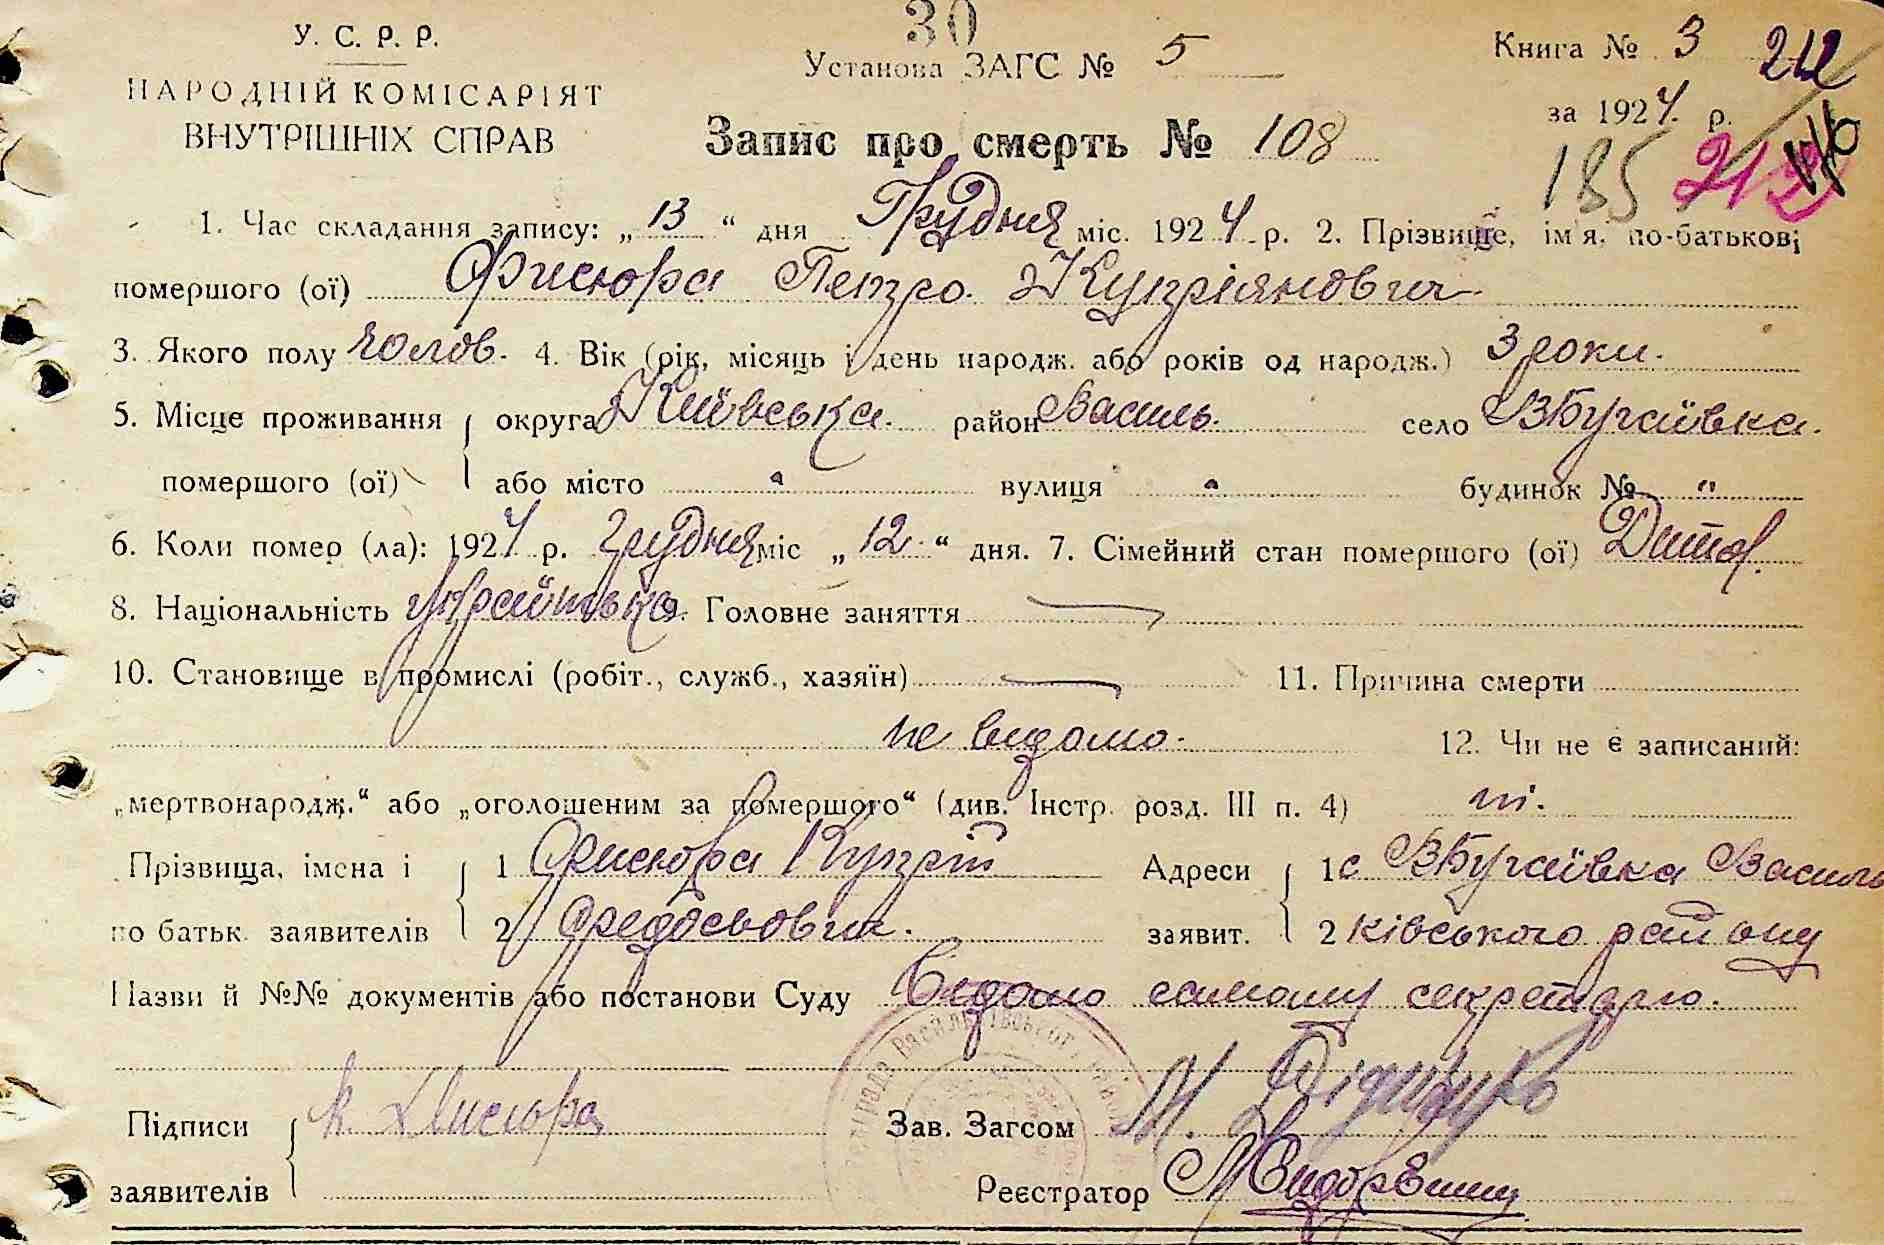 30
У. С. Р. Р.
НАРОДНІЙ КОМІСАРІЯТ
ВНУТРІШНІХ СПРАВ
Установа ЗАГС № 5
Книга № 3 212
за 1924 р.
185 212
Запис про смерть № 108
1. Час складання запису: „13“ дня Грудня міс. 1924 р. 2. Прізвище, ім'я, по-батькові
помершого (ої) Фисюра Петро Купріянович
3. Якого полу чолов. 4. Вік (рік, місяць і день народж. або років од народж.) 3 роки.
5. Місце проживання округа Київська. район Василь. село ВБугаївка.
помершого (ої) або місто " вулиця " будинок № "
6. Коли помер (ла): 1924 р. Грудня міс „12“ дня. 7. Сімейний стан помершого (ої) Дитя.
8. Національність Українська 9. Головне заняття —
10. Становище в промислі (робіт., служб., хазяїн) — 11. Причина смерти
не видомо. 12. Чи не є записаний:
„мертвонародж.“ або „оголошеним за помершого“ (див. Інстр. розд. III п. 4) ні.
Прізвища, імена і 1 Фисюра Купрій Адреси 1 с ВБугаївка Василь
по батьк. заявителів 2 Федосьович. заявит. 2 ківського району
Назви й №№ документів або постанови Суду Видомо самому секретарю.
Підписи К. Фисюра Зав. Загсом
заявителів Реєстратор